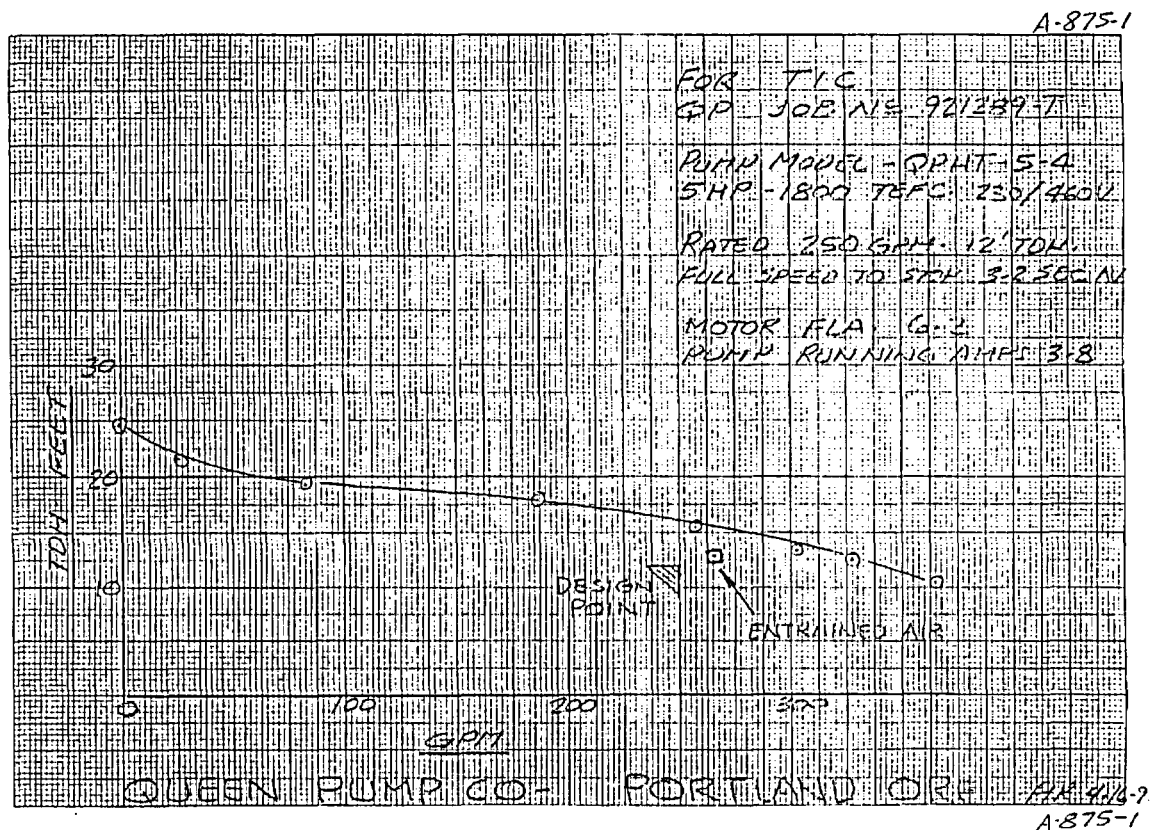 A-875-1
FOR TIC
QP JOB Nº 921289-T
PUMP MODEL - QPHT-5-4
5 HP - 1800 TEFC 230/460V
RATED 250 GPM. 12' TDH.
FULL SPEED TO STOP 3-2 SEC
MOTOR FLA.
PUMP RUNNING AMPS 3-8
30
20
10
TDH FEET
DESIGN
POINT
ENTRAINED AIR
0 100 200 300
GPM
QUEEN PUMP CO- PORTLAND ORE
A-875-1